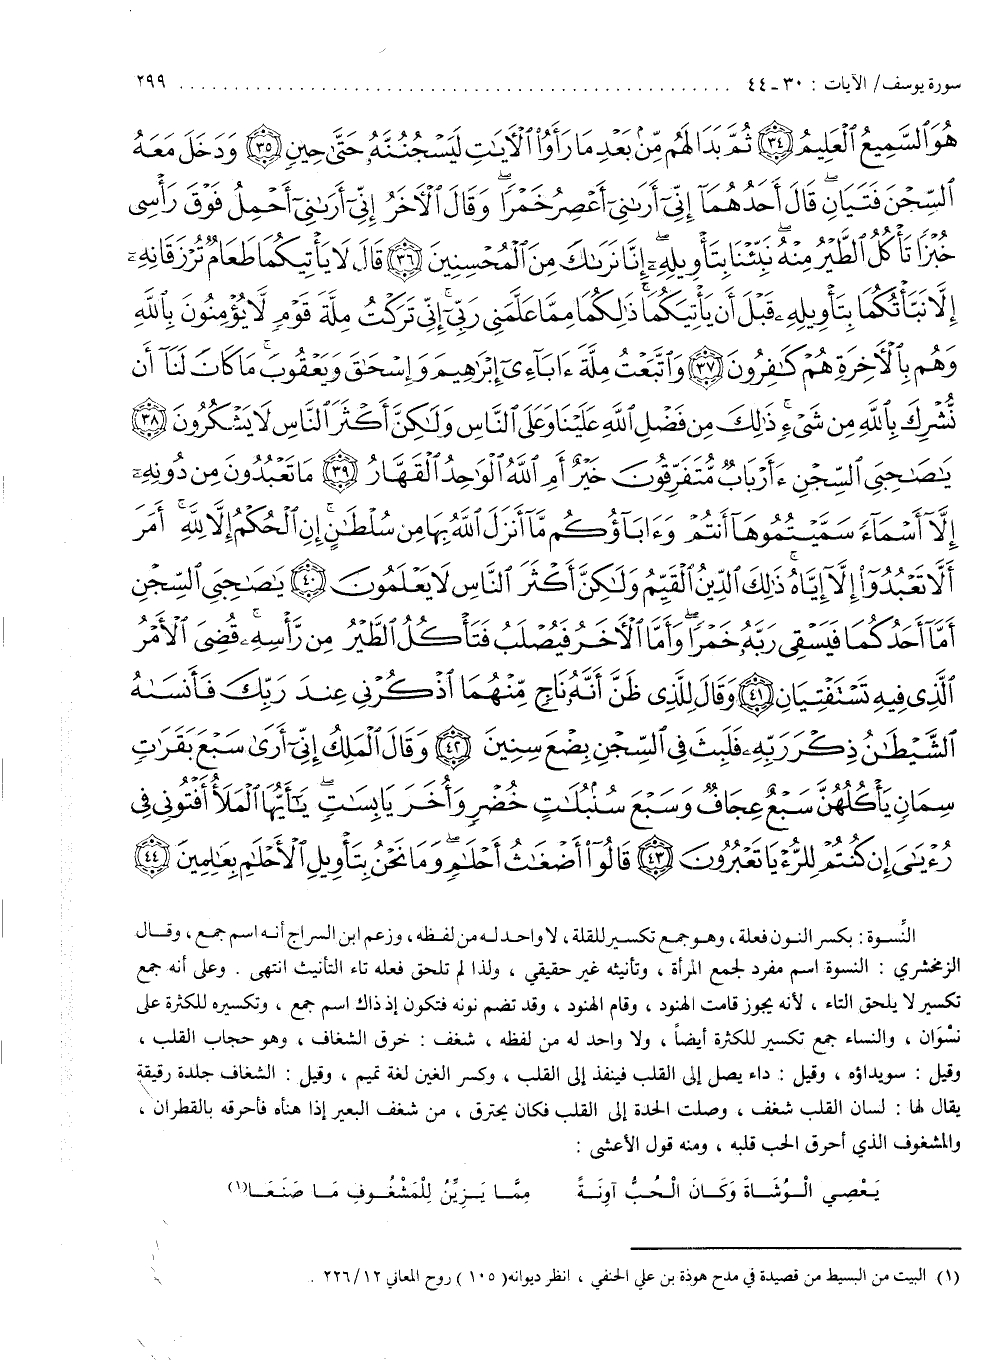 سورة يوسف/ الآيات : ٣٠ ـ ٤٤ ........................................................ ٢٩٩
هُوَ ٱلسَّمِيعُ ٱلْعَلِيمُ ﴿٣٤﴾ ثُمَّ بَدَا لَهُم مِّنۢ بَعْدِ مَا رَأَوُا۟ ٱلْءَايَٰتِ لَيَسْجُنُنَّهُۥ حَتَّىٰ حِينٍ ﴿٣٥﴾ وَدَخَلَ مَعَهُ
ٱلسِّجْنَ فَتَيَانِ ۖ قَالَ أَحَدُهُمَآ إِنِّىٓ أَرَىٰنِىٓ أَعْصِرُ خَمْرًا ۖ وَقَالَ ٱلْءَاخَرُ إِنِّىٓ أَرَىٰنِىٓ أَحْمِلُ فَوْقَ رَأْسِى
خُبْزًا تَأْكُلُ ٱلطَّيْرُ مِنْهُ ۖ نَبِّئْنَا بِتَأْوِيلِهِۦٓ ۖ إِنَّا نَرَىٰكَ مِنَ ٱلْمُحْسِنِينَ ﴿٣٦﴾ قَالَ لَا يَأْتِيكُمَا طَعَامٌ تُرْزَقَانِهِۦٓ
إِلَّا نَبَّأْتُكُمَا بِتَأْوِيلِهِۦ قَبْلَ أَن يَأْتِيَكُمَا ۚ ذَٰلِكُمَا مِمَّا عَلَّمَنِى رَبِّىٓ ۚ إِنِّى تَرَكْتُ مِلَّةَ قَوْمٍ لَّا يُؤْمِنُونَ بِٱللَّهِ
وَهُم بِٱلْءَاخِرَةِ هُمْ كَٰفِرُونَ ﴿٣٧﴾ وَٱتَّبَعْتُ مِلَّةَ ءَابَآءِىٓ إِبْرَٰهِيمَ وَإِسْحَٰقَ وَيَعْقُوبَ ۚ مَا كَانَ لَنَآ أَن
نُّشْرِكَ بِٱللَّهِ مِن شَىْءٍ ۚ ذَٰلِكَ مِن فَضْلِ ٱللَّهِ عَلَيْنَا وَعَلَى ٱلنَّاسِ وَلَٰكِنَّ أَكْثَرَ ٱلنَّاسِ لَا يَشْكُرُونَ ﴿٣٨﴾
يَٰصَٰحِبَىِ ٱلسِّجْنِ ءَأَرْبَابٌ مُّتَفَرِّقُونَ خَيْرٌ أَمِ ٱللَّهُ ٱلْوَٰحِدُ ٱلْقَهَّارُ ﴿٣٩﴾ مَا تَعْبُدُونَ مِن دُونِهِۦٓ
إِلَّآ أَسْمَآءً سَمَّيْتُمُوهَآ أَنتُمْ وَءَابَآؤُكُم مَّآ أَنزَلَ ٱللَّهُ بِهَا مِن سُلْطَٰنٍ ۚ إِنِ ٱلْحُكْمُ إِلَّا لِلَّهِ ۚ أَمَرَ
أَلَّا تَعْبُدُوٓا۟ إِلَّآ إِيَّاهُ ۚ ذَٰلِكَ ٱلدِّينُ ٱلْقَيِّمُ وَلَٰكِنَّ أَكْثَرَ ٱلنَّاسِ لَا يَعْلَمُونَ ﴿٤٠﴾ يَٰصَٰحِبَىِ ٱلسِّجْنِ
أَمَّآ أَحَدُكُمَا فَيَسْقِى رَبَّهُۥ خَمْرًا ۖ وَأَمَّا ٱلْءَاخَرُ فَيُصْلَبُ فَتَأْكُلُ ٱلطَّيْرُ مِن رَّأْسِهِۦ ۚ قُضِىَ ٱلْأَمْرُ
ٱلَّذِى فِيهِ تَسْتَفْتِيَانِ ﴿٤١﴾ وَقَالَ لِلَّذِى ظَنَّ أَنَّهُۥ نَاجٍ مِّنْهُمَا ٱذْكُرْنِى عِندَ رَبِّكَ فَأَنسَىٰهُ
ٱلشَّيْطَٰنُ ذِكْرَ رَبِّهِۦ فَلَبِثَ فِى ٱلسِّجْنِ بِضْعَ سِنِينَ ﴿٤٢﴾ وَقَالَ ٱلْمَلِكُ إِنِّىٓ أَرَىٰ سَبْعَ بَقَرَٰتٍ
سِمَانٍ يَأْكُلُهُنَّ سَبْعٌ عِجَافٌ وَسَبْعَ سُنۢبُلَٰتٍ خُضْرٍ وَأُخَرَ يَابِسَٰتٍ ۖ يَٰٓأَيُّهَا ٱلْمَلَأُ أَفْتُونِى فِى
رُءْيَٰىَ إِن كُنتُمْ لِلرُّءْيَا تَعْبُرُونَ ﴿٤٣﴾ قَالُوٓا۟ أَضْغَٰثُ أَحْلَٰمٍ ۖ وَمَا نَحْنُ بِتَأْوِيلِ ٱلْأَحْلَٰمِ بِعَٰلِمِينَ ﴿٤٤﴾
النِّسوة : بكسر النون فعلة ، وهو جمع تكسير للقلة ، لا واحد له من لفظه ، وزعم ابن السراج أنه اسم جمع ، وقال
الزمخشري : النسوة اسم مفرد لجمع المرأة ، وتأنيثه غير حقيقي ، ولذا لم تلحق فعله تاء التأنيث انتهى . وعلى أنه جمع
تكسير لا يلحق التاء ، لأنه يجوز قامت الهنود ، وقام الهنود ، وقد تضم نونه فتكون إذ ذاك اسم جمع ، وتكسيره للكثرة على
نسْوَان ، والنساء جمع تكسير للكثرة أيضاً ، ولا واحد له من لفظه ، شغف : خرق الشغاف ، وهو حجاب القلب ،
وقيل : سويداؤه ، وقيل : داء يصل إلى القلب فينفذ إلى القلب ، وكسر الغين لغة تميم ، وقيل : الشغاف جلدة رقيقة
يقال لها : لسان القلب شغف ، وصلت الحدة إلى القلب فكان يحترق ، من شغف البعير إذا هنأه فأحرقه بالقطران ،
والمشغوف الذي أحرق الحب قلبه ، ومنه قول الأعشى :
يَعْصِي الْوُشَاةَ وَكَانَ الْحُبُّ آوِنَةً مِمَّا يَزِيِّنُ لِلْمَشْغُوفِ مَا صَنَعَا(١)
(١) البيت من البسيط من قصيدة في مدح هوذة بن علي الحنفي ، انظر ديوانه( ١٠٥ ) روح المعاني ٢٢٦/١٢ .